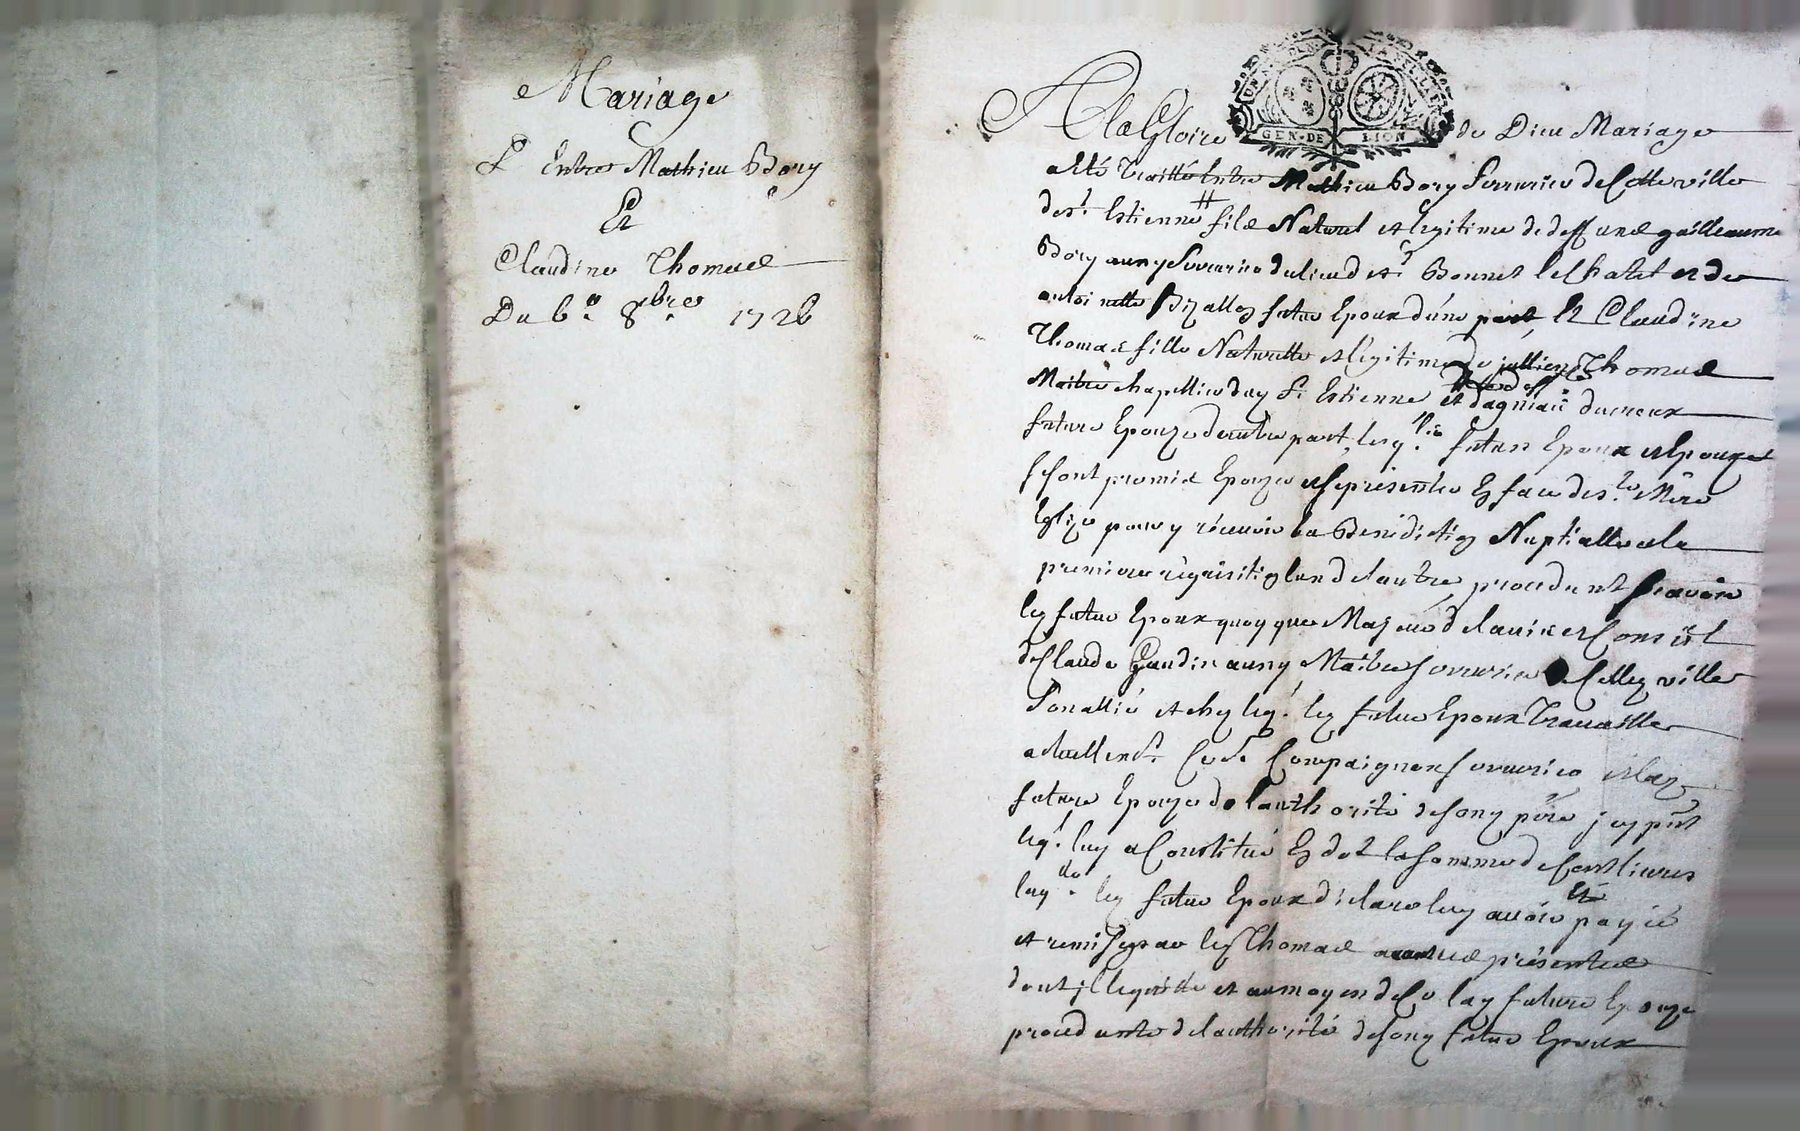 Mariage
D'Entre Mathieu Bory
Et
Claudine Thomas
Du 6e. 8bre. 1726
A la Gloire de Dieu Mariage
GEN·DE LION
a été Traitté Entre Mathieu Bory Serrurier de Cette ville
de st. Estienne fils Naturel et legitime de deffunct guilleaume
Bory aussy Serrurier du lieu de st. Bonnet le Chatel et de
futur Epoux d'une part, Et Claudine
Thomas fille Naturelle et legitime de jullien Thomas
Maitre chapellier duy St Estienne et d'agniau
future Epouze d'autre part, lesq.ls futurs Epoux et Epouze
se sont promis Epouzer et se presenter En face de ste. Mere
Eglize pour y recevoir la Benediction Nuptialle a la
premiere requisition l'un de l'autre, procedant scavoir
ley futur Epoux quoy que Majeur de l'avis et Conseil
de Claude Gaudin aussy Maitre serrurier de Cettez ville
Son allié et chez leq.l ley futur Epoux Travaille
actuellem.t Compaignon serrurier et laz
future Epouze de l'authorité de son pere jcy pnt
leq.l luy a Constitué En dot la somme de Cent livres
laq. ley futur Epoux declare luy avoir Eté payée
et remise par ley Thomas avant ces présentes
dont jl le quitte et au moyen de Ce lay future Epouze
procedante de l'authorité de son futur Epoux